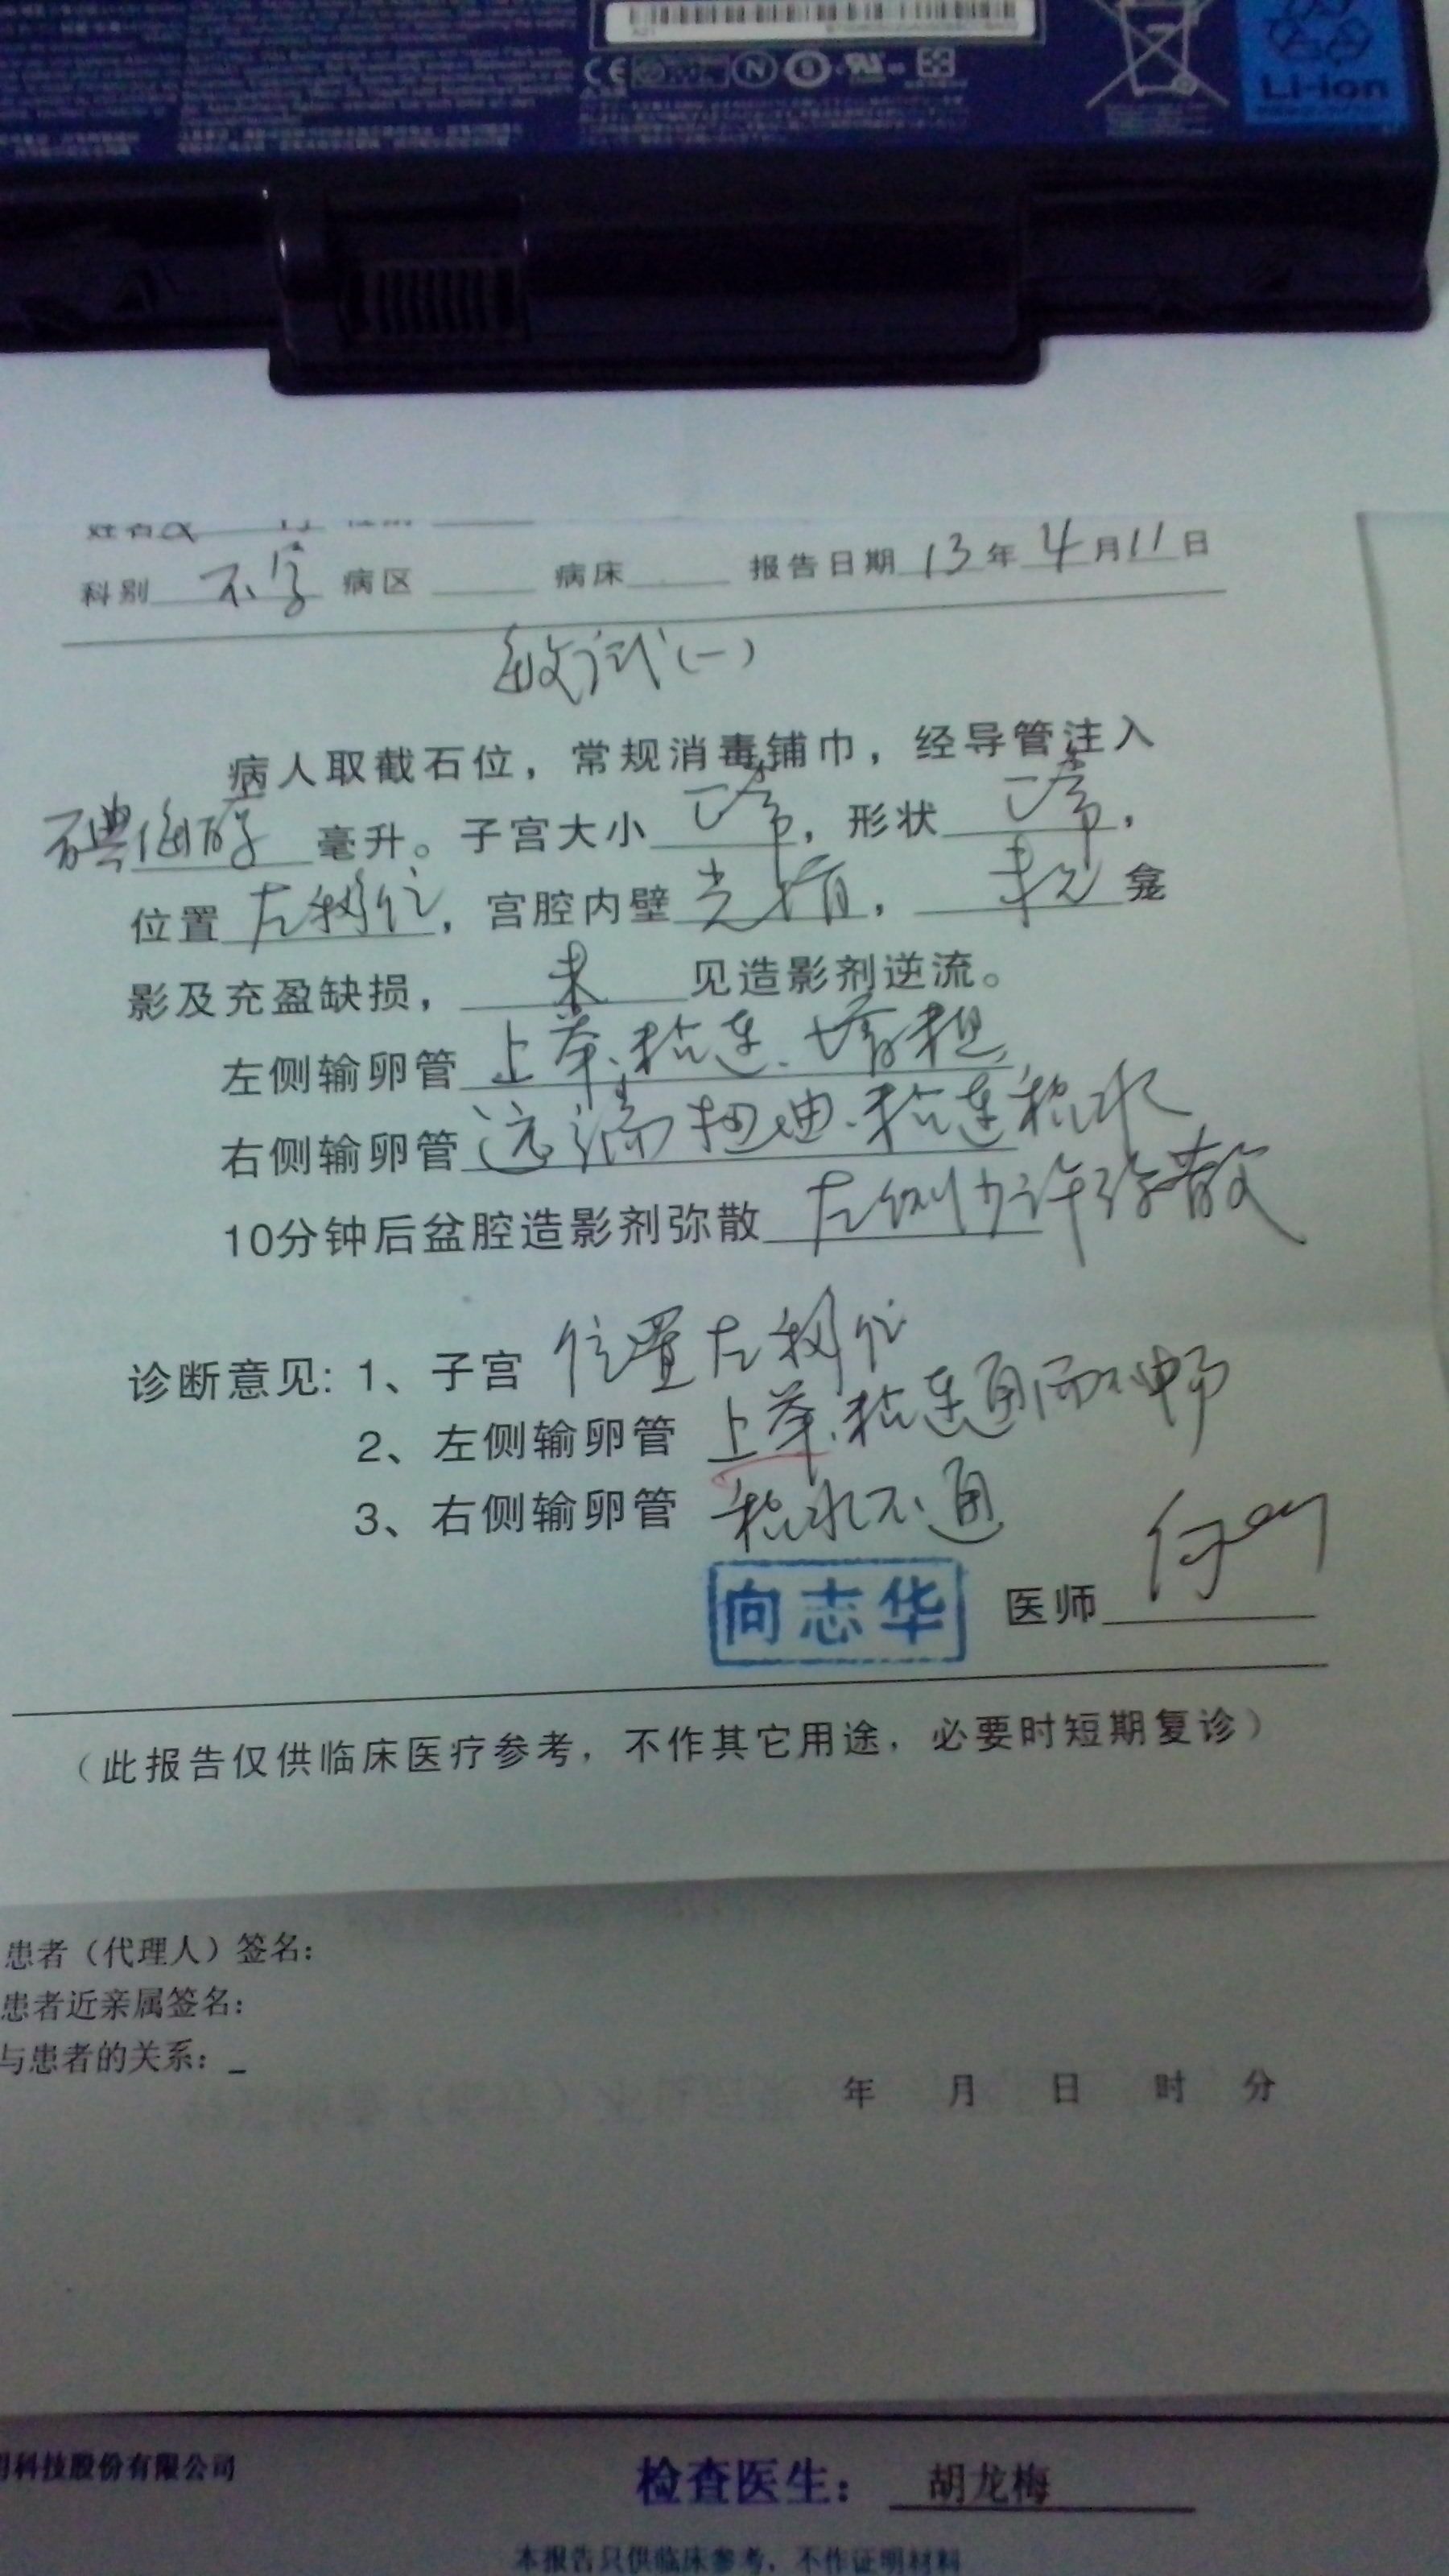 Li-ion
科别 不孕 病区 病床 报告日期 13年4月11日
敏试(一)
病人取截石位，常规消毒铺巾，经导管注入
碘海醇 毫升。子宫大小 正常，形状 正常，
位置 左移位，宫腔内壁 光滑，未见 龛
影及充盈缺损，未 见造影剂逆流。
左侧输卵管 上举、粘连、增粗
右侧输卵管 远端扭曲、粘连积水
10分钟后盆腔造影剂弥散 左侧少许弥散
诊断意见: 1、子宫 位置左移位
2、左侧输卵管 上举、粘连通而不畅
3、右侧输卵管 积水不通
向志华 医师
（此报告仅供临床医疗参考，不作其它用途，必要时短期复诊）
患者（代理人）签名：
患者近亲属签名：
与患者的关系：
年 月 日 时 分
科技股份有限公司
检查医生： 胡龙梅
本报告只供临床参考，不作证明材料